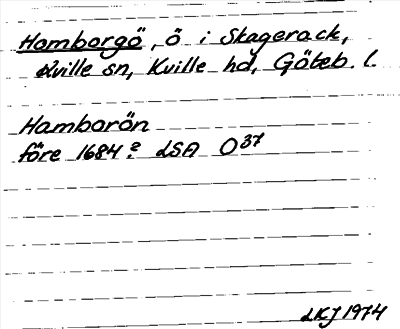 Hamborgö, ö i Skagerack,
Kville sn, Kville hd, Göteb. l.
Hamborön
före 1684? LSA O37
LKJ 1974